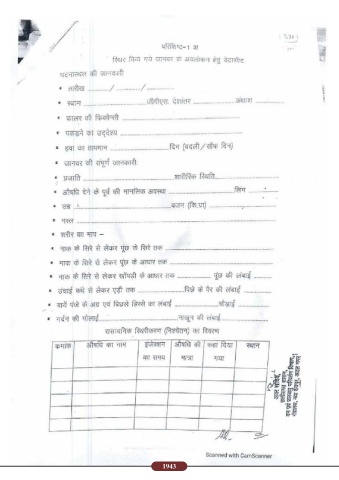 परिशिष्ट-1 अ
स्थिर किये गये जानवर के अवलोकन हेतु डेटाशीट
घटनास्थल की जानकारी
• तारीख ........../........../..........
• स्थान ..........जीपीएस. देशांतर ..........अक्षांश ..........
• कालर की फ्रिक्वेन्सी ..........
• पकड़ने का उद्देश्य ..........
• हवा का तापमान ..........दिन (बदली/साफ दिन)
• जानवर की संपूर्ण जानकारी
• प्रजाति ..........शारीरिक स्थिति..........
• औषधि देने के पूर्व की मानसिक अवस्था ..........लिंग ..........
• उम्र ..........वजन (कि.ग्रा) ..........
• नस्ल ..........
• शरीर का माप –
• नाक के सिरे से लेकर पूंछ के सिरे तक ..........
• नाक के सिरे से लेकर पूंछ के आधार तक ..........
• नाक के सिरे से लेकर खोंपड़ी के आधार तक .......... पूंछ की लंबाई ..........
• उंचाई कंधे से लेकर एड़ी तक ..........पिछे के पैर की लंबाई ..........
• दायें पंजे के अग्र एवं पिछले हिस्से का लंबाई ..........चौड़ाई ..........
• गर्दन की गोलाई ..........नाखून की लंबाई ..........
रासायनिक स्थिरीकरण (निश्चेतन) का विवरण
क्रमांक औषधि का नाम इंजेक्शन का समय औषधि की मात्रा कहा दिया गया स्थान
Scanned with CamScanner
1943